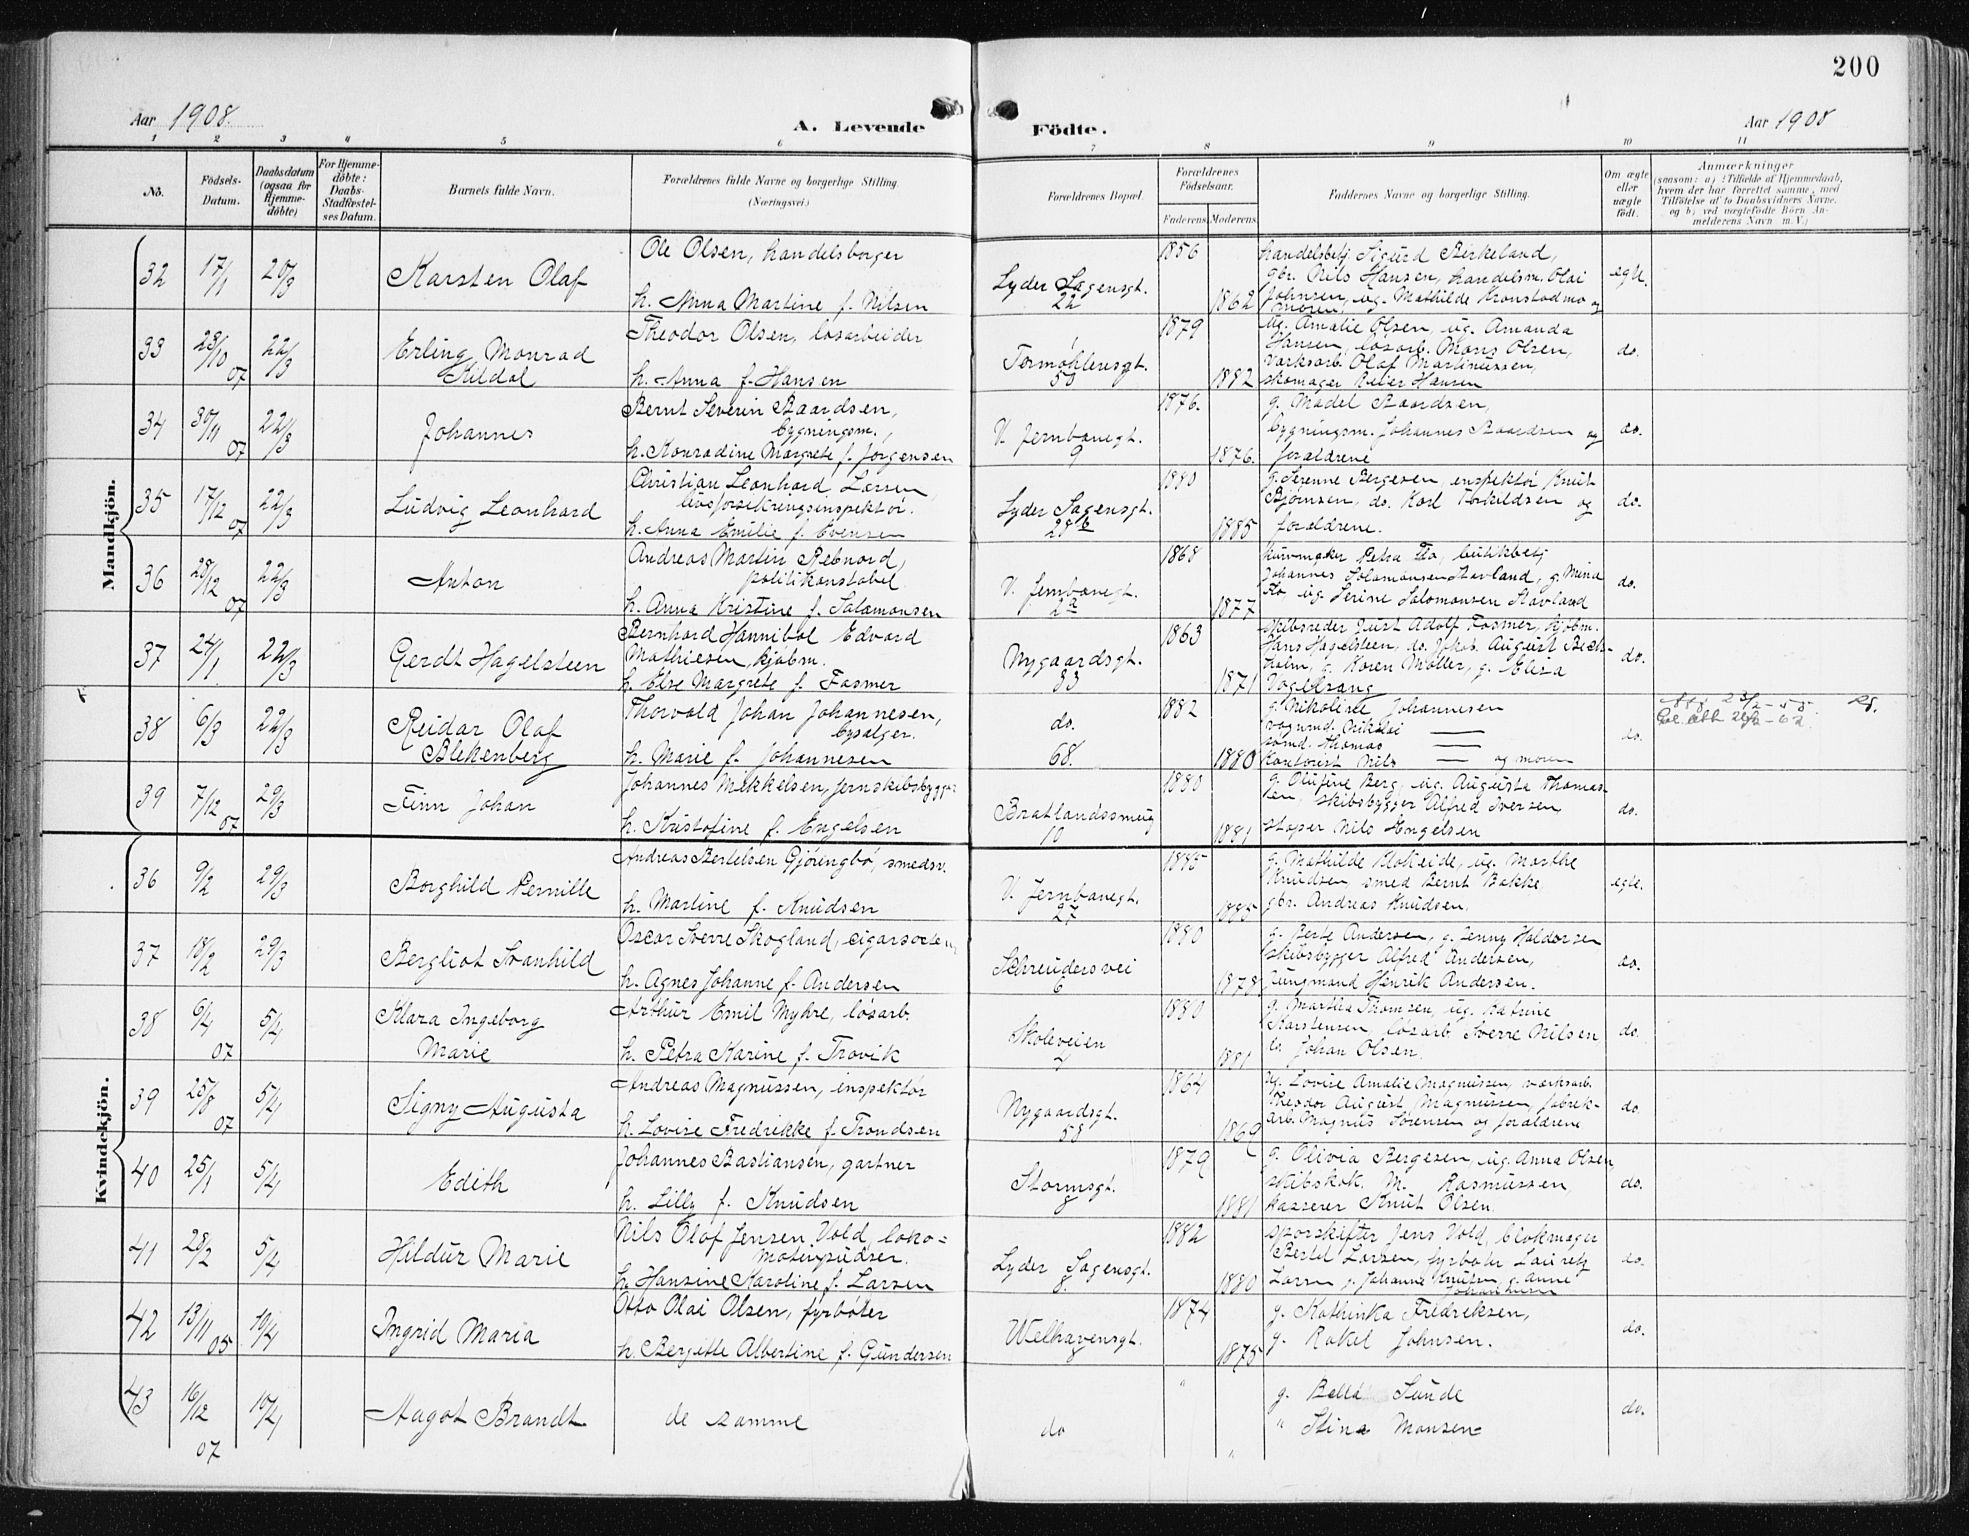 200
Aar 1908.
A. Levende Födte.
Aar 1908
1 2 3 4 5 6 7 8 9 10 11
No.
Fødsels-Datum.
Daabsdatum (ogsaa for Hjemme-döbte)
For Hjemme-döbte: Daabs-Stadfæstel-ses Datum.
Barnets fulde Navn.
Forældrenes fulde Navne og borgerlige Stilling. (Næringsvei.)
Forældrenes Bopæl.
Forældrenes Födselsaar.
Faderens Moderens
Faddernes Navne og borgerlige Stilling.
Om ægte eller uægte født.
Anmærkninger
(saasom: a) i Tilfælde af Hjemmedaab,
hvem der har forrettet samme, med
Tilföielse af to Daabsvidners Navne,
og b) ved uægtefödte Börn An-
melderens Navn m. V.)
Mandkjön.
32 17/1 20/3 Karsten Olaf
Ole Olsen, handelsborger
h. Anna Martine f. Nilsen
Lyder Sagensgt. 22
1856 1862
handelsbetj. Sigurd Birkeland,
gbr. Nils Hansen, handelsm. Olai
Johnsen, ug. Mathilde Kronstadmo og
moren
egte.
33 23/10 07 22/3 Erling Monrad Kildal
Theodor Olsen, løsarbeider
h. Anna f. Hansen
Tormøhlensgt. 50
1879 1882
ug. Amalie Olsen, ug. Amanda
Hansen, løsarb. Mons Olsen,
værksarb. Olaf Martinussen,
skomager Reier Hansen
do.
34 30/11 07 22/3 Johannes
Bernt Severin Baardsen,
bygningsm.,
h. Konradine Margrete f. Jørgensen
V. Jernbanegt. 9
1876. 1876.
g. Madel Baardsen,
bygningsm. Johannes Baardsen og
forældrene
do.
35 17/12 07 22/3 Ludvig Leonhard
Christian Leonhard Larsen
livsforsikringsinspektør.
h. Anna Emilie f. Evensen
Lyder Sagensgt. 28b
1880 1885
g. Serenne Bergesen, inspektør Knut
Bjørnsen, do. Karl Torkildsen og
forældrene.
do.
36 28/12 07 22/3 Anton
Andreas Martin Rebnord,
politikonstabel
h. Anna Kristine f. Salamonsen
V. Jernbanegt. 2a
1868 1877
kurvmaker Petra Flo, butikbetj.
Johannes Salamonsen Stavland, g. Mina
Flo, ug. Serine Salomonsen Stavland
do.
37 24/1 22/3 Gerdt Hagelsteen
Bernhard Hannibal Edvard
Mathiesen, kjøbm.
h. Else Margrete f. Fasmer
Nygaardsgt. 83
1863 1871
skibsreder Just Adolf Fasmer, kjøbm.
Hans Hagelsteen, do. Jakob August Bech-
holm, g. Karen Møller, g. Elisa
Vogelsang
do.
38 6/3 22/3 Reidar Olaf Blekenberg
Thorvald Johan Johannesen,
bysælger.
h. Marie f. Johannesen
do. 68.
1882 1880
g. Nikoline Johannesen
vognmd. Nikolai —
sømd. Thomas —
Kontorist Nils — og moren
do.
39 7/12 07 29/3 Finn Johan
Johannes Mikkelsen, jernskibsbygger
h. Kristofine f. Engelsen
Bratlandssmug 10
1880 1881
g. Olufine Berg, ug. Augusta Thomas-
sen, skibsbygger Alfred Iversen,
støper Nils Engelsen
do.
Kvindekjön.
36 9/2 29/3 Borghild Pernille
Andreas Bertelsen Gjøringbø, smedsv.
h. Martine f. Knudsen
V. Jernbanegt. 27
1885 1885
g. Mathilde Klokeide, ug. Marthe
Knudsen, smed Bernt Bakke,
gbr. Andreas Knudsen.
egte.
37 18/2 29/3 Bergliot Svanhild
Oscar Sverre Skogland, cigarsorterer
h. Agnes Johanne f. Andersen
Schreudersvei 6
1880 1878
g. Berte Andersen, g. Jenny Haldorsen
skibsbygger Alfred Andersen,
Jungmand Henrik Andersen.
do.
38 6/4 07 5/4 Klara Ingeborg Marie
Arthur Emil Myhre, løsarb.
h. Petra Karine f. Trovik
Skoleveien 4
1880 1881
g. Martha Thomsen, ug. Katrine
Karstensen, løsarb. Sverre Nilsen
ds. Johan Olsen.
do.
39 25/8 07 5/4 Signy Augusta
Andreas Magnussen, inspektør
h. Lovise Fredrikke f. Trondsen
Nygaardsgt. 58
1864 1869
ug. Lovise Amalie Magnussen, værksarb.
Theodor August Magnussen, fabrik-
arb. Magnus Sørensen og forældrene
do.
40 25/1 5/4 Edith
Johannes Bastiansen, gartner
h. Lilly f. Knudsen
Stormsgt. 8
1879 1881
g. Olivia Bergesen, ug. Anna Olsen
skibskok. M. Rasmussen,
kasserer Knut Olsen.
do.
41 28/2 5/4 Hildur Marie
Nils Olaf Jensen Vold, loko-
motivpudser.
h. Hansine Karoline f. Larsen
Lyder Sagensgt. 8.
1882 1880
sporskifter Jens Vold, blokmager
Bertel Larsen, fyrbøter Lauretz
Larsen g. Johanne Knutsen, g. Anne
Johannesen
do.
42 13/11 05 10/4 Ingrid Maria
Otto Olai Olsen, fyrbøter
h. Bergitte Albertine f. Gundersen
Welhavensgt. 8
1874 1875
g. Kathinka Fredriksen,
g. Rakel Johnsen.
do.
43 16/12 07 10/4 Aagot Brandt
de samme
do
" "
g. Bella Sunde
" Stina Monsen
do.